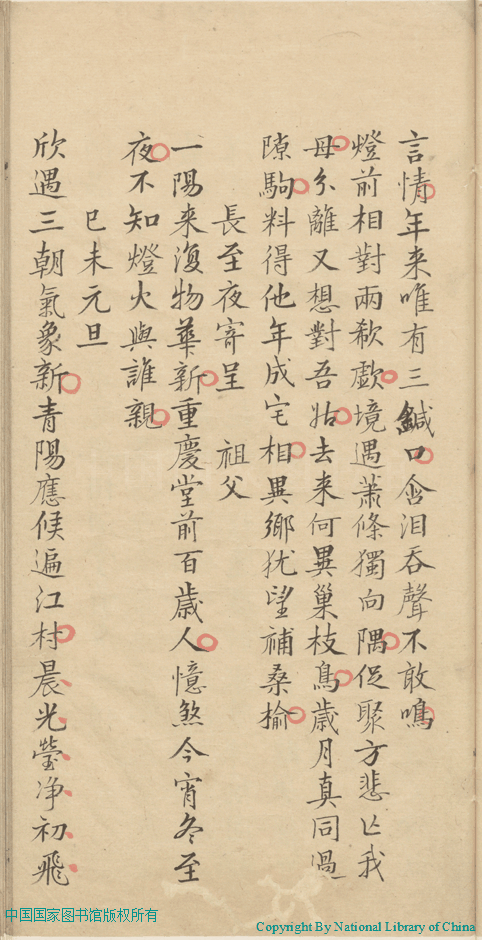 言情年来唯有三鍼口含泪吞聲不敢鳴
燈前相對兩欷歔境遇蕭條獨向隅促聚方悲亡我
母分離又想對吾姑去来何異巢枝鳥歲月真同過
隙駒料得他年成宅相異鄉犹望補桑榆
長至夜寄呈 祖父
一陽来復物華新重慶堂前百歲人憶煞今宵冬至
夜不知燈火與誰親
己未元旦
欣遇三朝氣象新青陽應候遍江村晨光瑩净初飛
中国国家图书馆版权所有
Copyright By National Library of China